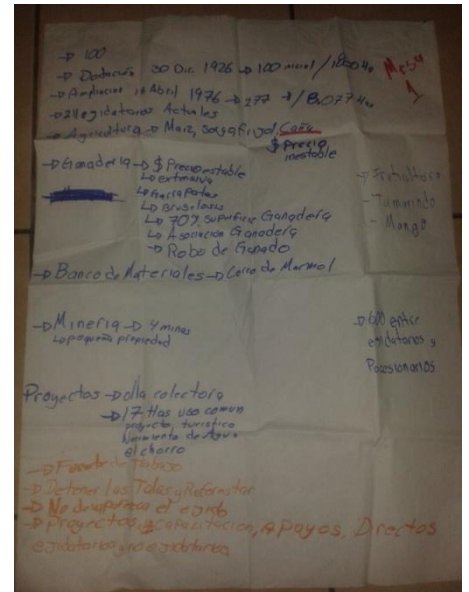 → 100
→ Dodación 30 Dic 1926 → 100 inicial / 1800 Ha
Mesa 1
→ Ampliacion 18 Abril 1976 → 277 → / 8,077 Ha
Egidatarios Actuales
→ Agricultura → Maiz, sorgo, frijol, Caña
$ Precio inestable
→ Ganaderia → $ Precio inestable
↳ extensiva
↳ Garrapatas
↳ Brusolosis
↳ 70% superficie Ganadera
↳ Asociación Ganadera
→ Robo de Ganado
- Frutultora
- Tamarindo
- Mango
→ Banco de Materiales → Cerro de Marmol
→ Mineria → 4 minas
↳ pequeña propiedad
→ 600 entre
egidatarios y
Posesionarios
Proyectos → olla colectora
→ 17 Has uso comun
proyecto turistico
Nacimiento de Agua
el chorro
→ Fuente de trabajo
→ Detener las Talas y Reforestar
→ No desaparesca el ejido
→ Proyectos, capacitacion, Apoyos, Directos
ejidatarios y no ejidatarios